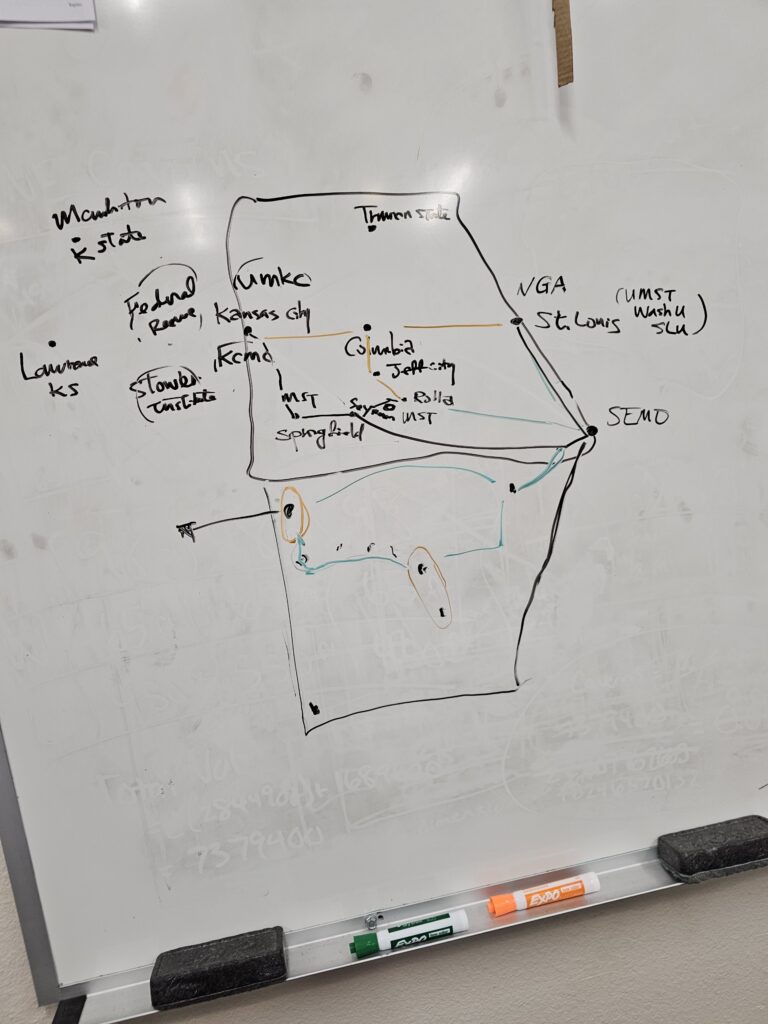 Manhattan
K state
Truman State
Federal
Reserve,
UMKC
Kansas City
KCMO
NGA
St. Louis
(UMST
WashU
SLU)
Lawrence
KS
Stowers
Institute
Columbia
Jeff City
MST
Springfield
Seymour
Rolla
MST
SEMO
7379400
EXPO
EXPO